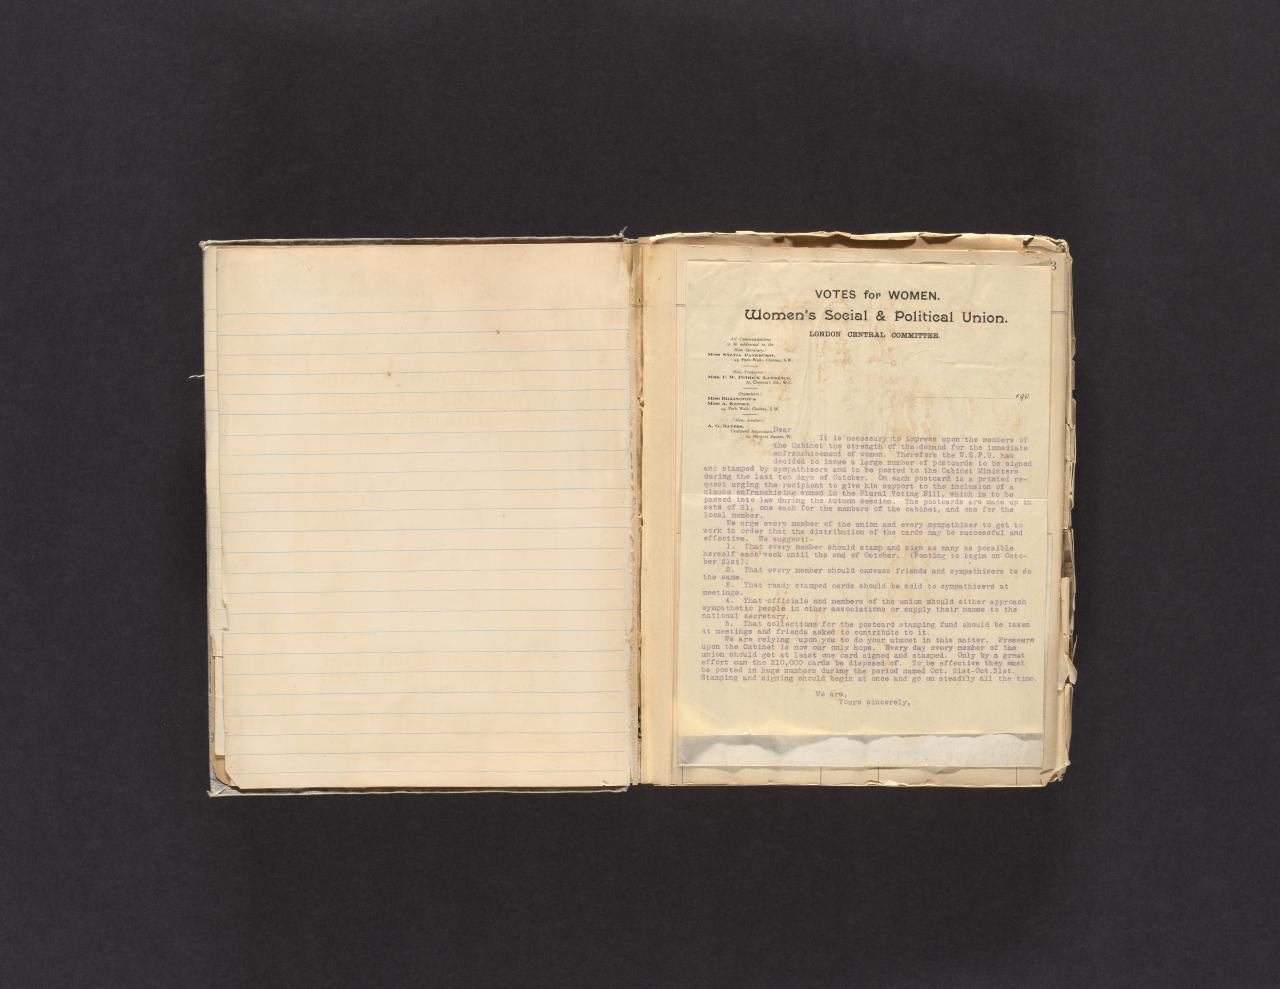 3
VOTES for WOMEN.
Women's Social & Political Union.
LONDON CENTRAL COMMITTEE.
All Communications
to be addressed to the
Hon. Secretary:
MISS SYLVIA PANKHURST,
45, Park Walk, Chelsea, S.W.
Hon. Treasurer:
MRS. F. W. PETHICK LAWRENCE,
Clement's Inn, W.C.
Organisers:
MISS BILLINGTON &
MISS A. KENNEY,
45, Park Walk, Chelsea, S.W.
190
Hon. Auditor:
A. G. SAYERS,
Chartered Accountant,
Hanover Square, W.
Dear
It is necessary to impress upon the members of
the Cabinet the strength of the demand for the immediate
enfranchisement of women. Therefore the W.S.P.U. has
decided to issue a large number of postcards to be signed
and stamped by sympathisers and to be posted to the Cabinet Ministers
during the last ten days of October. On each postcard is a printed re-
quest urging the recipient to give his support to the inclusion of a
clause enfranchising women in the Plural Voting Bill, which is to be
passed into law during the Autumn Session. The postcards are made up in
sets of 21, one each for the members of the cabinet, and one for the
local member.
We urge every member of the union and every sympathiser to get to
work in order that the distribution of the cards may be successful and
effective. We suggest:-
1. That every member should stamp and sign as many as possible
herself each week until the end of October. (Posting to begin on Octo-
ber 21st).
2. That every member should canvass friends and sympathisers to do
the same.
3. That ready stamped cards should be sold to sympathisers at
meetings.
4. That officials and members of the union should either approach
sympathetic people in other associations or supply their names to the
national secretary.
5. That collections for the postcard stamping fund should be taken
at meetings and friends asked to contribute to it.
We are relying upon you to do your utmost in this matter. Pressure
upon the Cabinet is now our only hope. Every day every member of the
union should get at least one card signed and stamped. Only by a great
effort can the 210,000 cards be disposed of. To be effective they must
be posted in huge numbers during the period named Oct. 21st-Oct.31st.
Stamping and signing should begin at once and go on steadily all the time.
We are,
Yours sincerely,